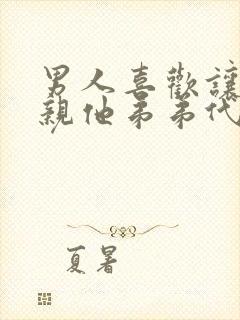 男人喜歡讓
親他弟弟代
夏暑